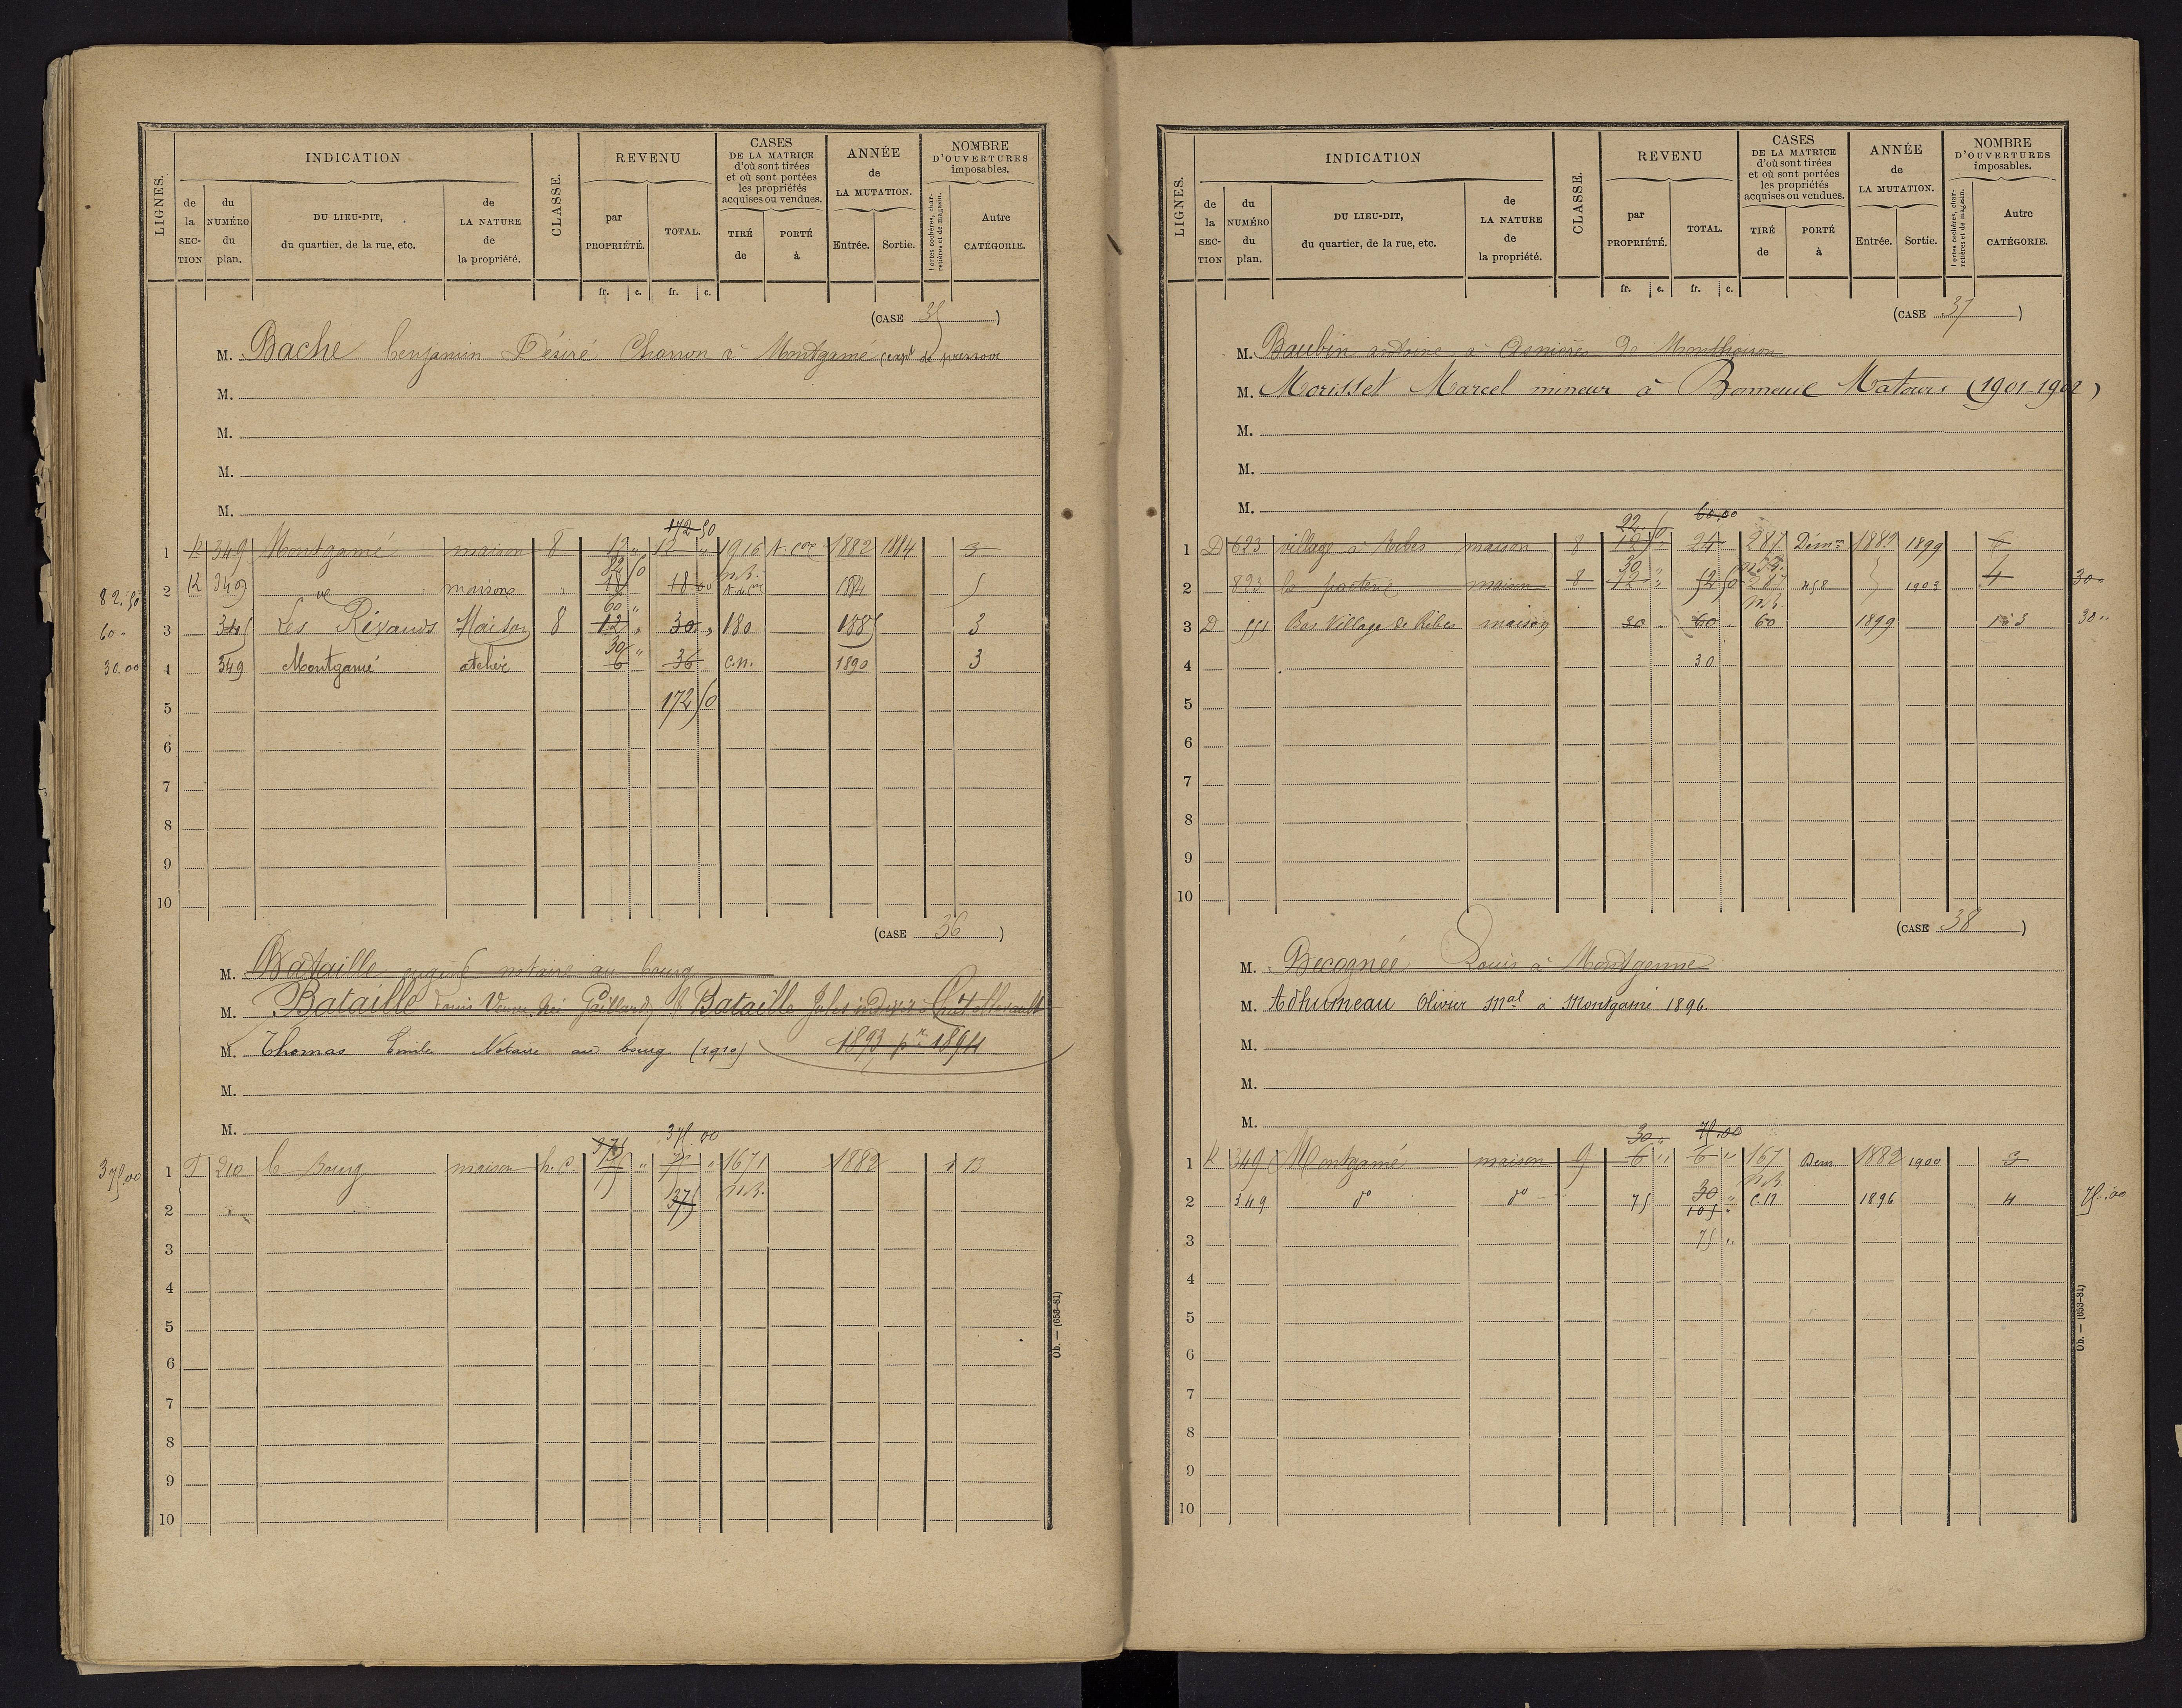 LIGNES.
INDICATION
de la SECTION
du NUMÉRO du plan.
DU LIEU-DIT, du quartier, de la rue, etc.
de LA NATURE de la propriété.
CLASSE.
REVENU
par PROPRIÉTÉ.
TOTAL.
fr. c. fr. c.
CASES DE LA MATRICE d'où sont tirées et où sont portées les propriétés acquises ou vendues.
TIRÉ de
PORTÉ à
ANNÉE de LA MUTATION.
Entrée. Sortie.
NOMBRE D'OUVERTURES imposables.
Portes cochères, charretières et de magasin.
Autre CATÉGORIE.
(CASE 35)
M. Bache benjamin Désiré Charron à Montgamé
M.
M.
M.
M.
172 50
1 K 349 Montgamé maison 8 12 " 12 " 1916 1882 1884 3
82 50
82.50 2 K 349 maisons 18 18 00 1884 5
60 "
60 " 3 345 Les Rivauds Maison 8 12 " 30 " 180 1885 3
30 "
30.00 4 349 Montgamé atelier 6 36 C.n. 1890 3
5 172 50
6
7
8
9
10
(CASE 36)
M. Bataille eugène notaire au bourg
M. Bataille Louis Veuve née Gaillard & Bataille Jules à Chatellerault
M. Thomas Emile Notaire au bourg (1910) 1893 pr 1894
M.
M.
375 375 00
375.00 1 210 le Bourg maison h.c. 75 " 75 " 1671 1882 1 13
2 375 n.R.
3
4
5
6
7
8
9
10
Ob. — (653-81)
LIGNES.
INDICATION
de la SECTION
du NUMÉRO du plan.
DU LIEU-DIT, du quartier, de la rue, etc.
de LA NATURE de la propriété.
CLASSE.
REVENU
par PROPRIÉTÉ.
TOTAL.
fr. c. fr. c.
CASES DE LA MATRICE d'où sont tirées et où sont portées les propriétés acquises ou vendues.
TIRÉ de
PORTÉ à
ANNÉE de LA MUTATION.
Entrée. Sortie.
NOMBRE D'OUVERTURES imposables.
Portes cochères, charretières et de magasin.
Autre CATÉGORIE.
(CASE 37)
M. Baubin antoine à Asnières de Monthoiron
M. Morisset Marcel mineur à Bonneuil Matours (1901-1902)
M.
M.
M.
22 50 60.00
1 D 623 village à Ribes maison 8 12 " 24 287 Démon 1882 1899
30
2 823 maison 8 12 " 52 50 287 458 1903 4 30 "
n.R.
3 D 551 Bas Village de Ribes maison 30 60 60 1899 3 30 "
4 30
5
6
7
8
9
10
(CASE 38)
M. Becognée Louis à Montgamé
M. Adhumeau Olivier Mal à Montgamé 1896.
M.
M.
M.
30 " 75.00
1 K 349 Montgamé maison 9 6 " 6 " 167 Dem 1882 1900 3
30 n.R.
2 349 do do 75 105 " C.n 1896 4 75.00
3 75 "
4
5
6
7
8
9
10
Ob. — (653-81)